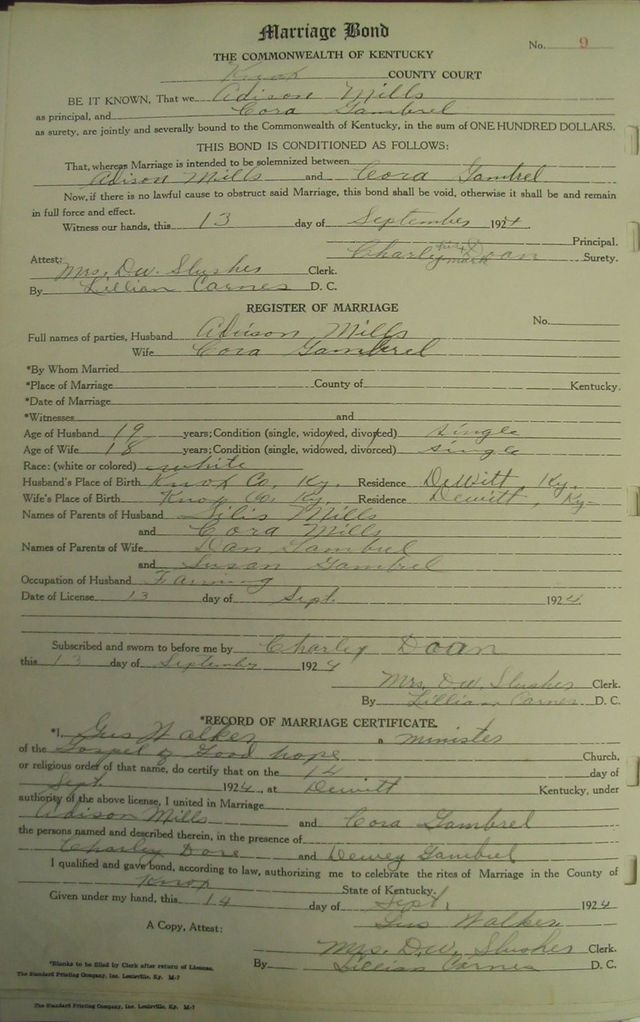 Marriage Bond
No. 9
THE COMMONWEALTH OF KENTUCKY
Knox COUNTY COURT
BE IT KNOWN, That we Adison Mills
as principal, and Cora Gambrel
as surety, are jointly and severally bound to the Commonwealth of Kentucky, in the sum of ONE HUNDRED DOLLARS.
THIS BOND IS CONDITIONED AS FOLLOWS:
That, whereas Marriage is intended to be solemnized between
Adison Mills and Cora Gambrel
Now, if there is no lawful cause to obstruct said Marriage, this bond shall be void, otherwise it shall be and remain
in full force and effect.
Witness our hands, this 13 day of September 1924
Principal.
Charley Doan Surety.
Attest:
Mrs. D.W. Slusher Clerk.
By Lillian Carnes D. C.
REGISTER OF MARRIAGE
No.
Full names of parties, Husband Adison Mills
Wife Cora Gambrel
*By Whom Married
*Place of Marriage County of Kentucky.
*Date of Marriage
*Witnesses and
Age of Husband 19 years; Condition (single, widowed, divorced) single
Age of Wife 18 years; Condition (single, widowed, divorced) single
Race: (white or colored) white
Husband's Place of Birth Knox Co. Ky. Residence DeWitt, Ky.
Wife's Place of Birth Knox Co. Ky. Residence Dewitt, Ky.
Names of Parents of Husband Mills
and Cora Mills
Names of Parents of Wife Dan Gambrel
and Susan Gambrel
Occupation of Husband Farming
Date of License 13 day of Sept. 1924
Subscribed and sworn to before me by Charley Doan
this 13 day of September 1924
Mrs. D.W. Slusher Clerk.
By Lillian Carnes D. C.
*RECORD OF MARRIAGE CERTIFICATE.
*I, Gus Walker a minister
of the Gospel of Good hope Church,
or religious order of that name, do certify that on the 14 day of
Sept. 1924, at Dewitt Kentucky, under
authority of the above license, I united in Marriage
Adison Mills and Cora Gambrel
the persons named and described therein, in the presence of
Charley Dore and Dewey Gambrel
I qualified and gave bond, according to law, authorizing me to celebrate the rites of Marriage in the County of
Knox State of Kentucky.
Given under my hand, this 14 day of Sept, 1924
Gus Walker
A Copy, Attest:
Mrs. D.W. Slusher Clerk.
By Lillian Carnes D. C.
*Blanks to be filled by Clerk after return of License.
The Standard Printing Company, Inc. Louisville, Ky. M-7
The Standard Printing Company, Inc. Louisville, Ky. M-7